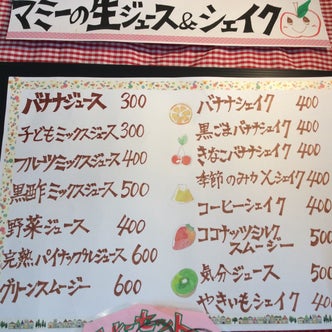 マミーの生ジュース&シェイク
バナナジュース 300
子どもミックスジュース 300
フルーツミックスジュース 400
黒酢ミックスジュース 500
野菜ジュース 400
完熟パイナップルジュース 600
グリーンスムージー 600
バナナシェイク 400
黒ごまバナナシェイク 400
きなこバナナシェイク 400
季節のみかんシェイク 400
コーヒーシェイク 400
ココナッツミルク
スムージー 500
気分ジュース 500
やきいもシェイク 400